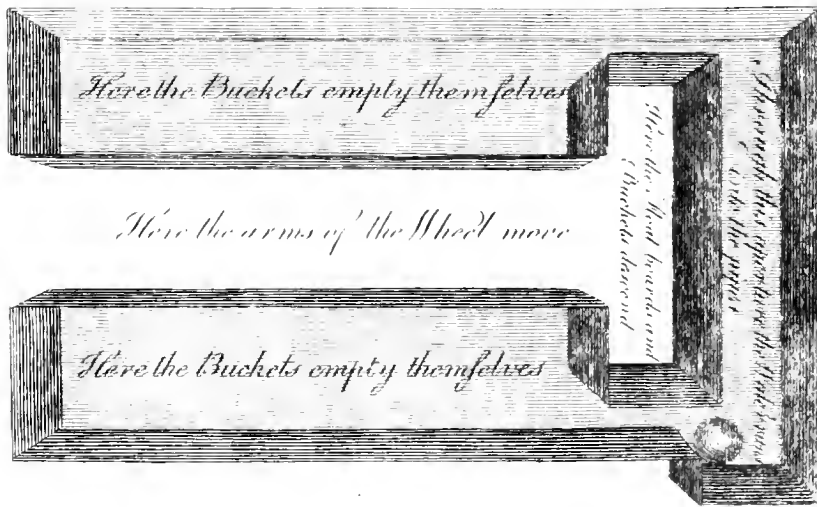 Here the Buckets empty themſelves
Here the arms of the Wheel move
Here the Buckets empty themſelves
Here the float boards and
Buckets descend
Through this aperture the Water runs
into the pipes